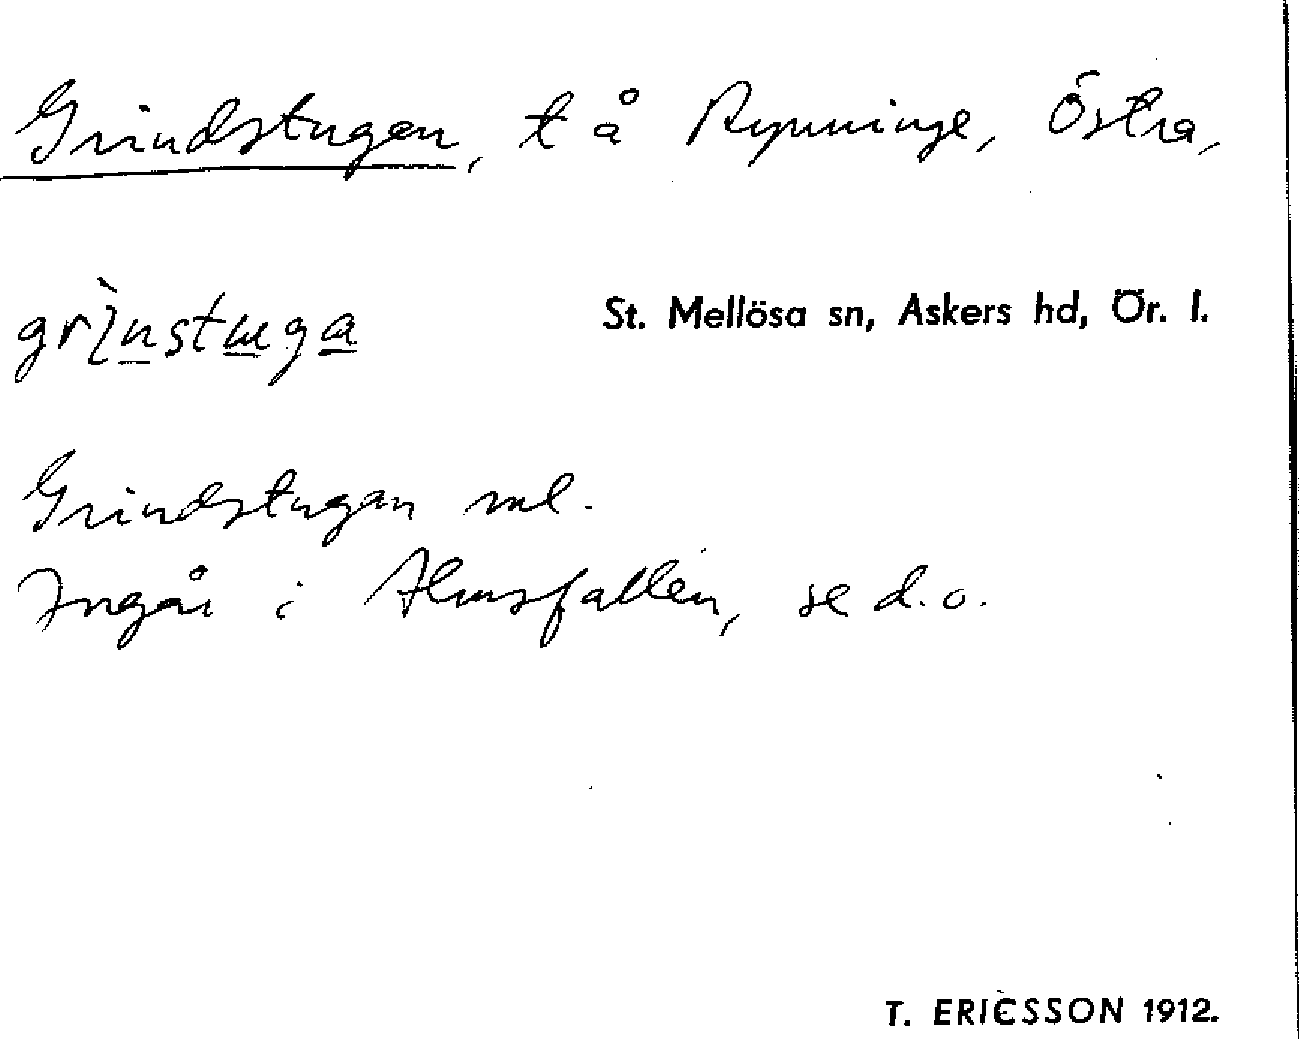 Grindstugan, t å Rynninge, Östra,
St. Mellösa sn, Askers hd, Ör. l.
Grindstugan ml.
Ingår i Almsfallen, se d.o.
T. ERICSSON 1912.